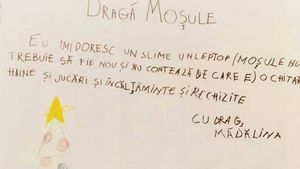 DRAGĂ MOȘULE
EU ÎMI DORESC UN SLIME UN LEPTOP (MOȘULE NU
TREBUIE SĂ FIE NOU ȘI NU CONTEAZĂ DE CARE E) O CHITARĂ
HAINE ȘI JUCĂRI ȘI ÎNCĂLȚĂMINTE ȘI RECHIZITE
CU DRAG,
MĂDĂLINA